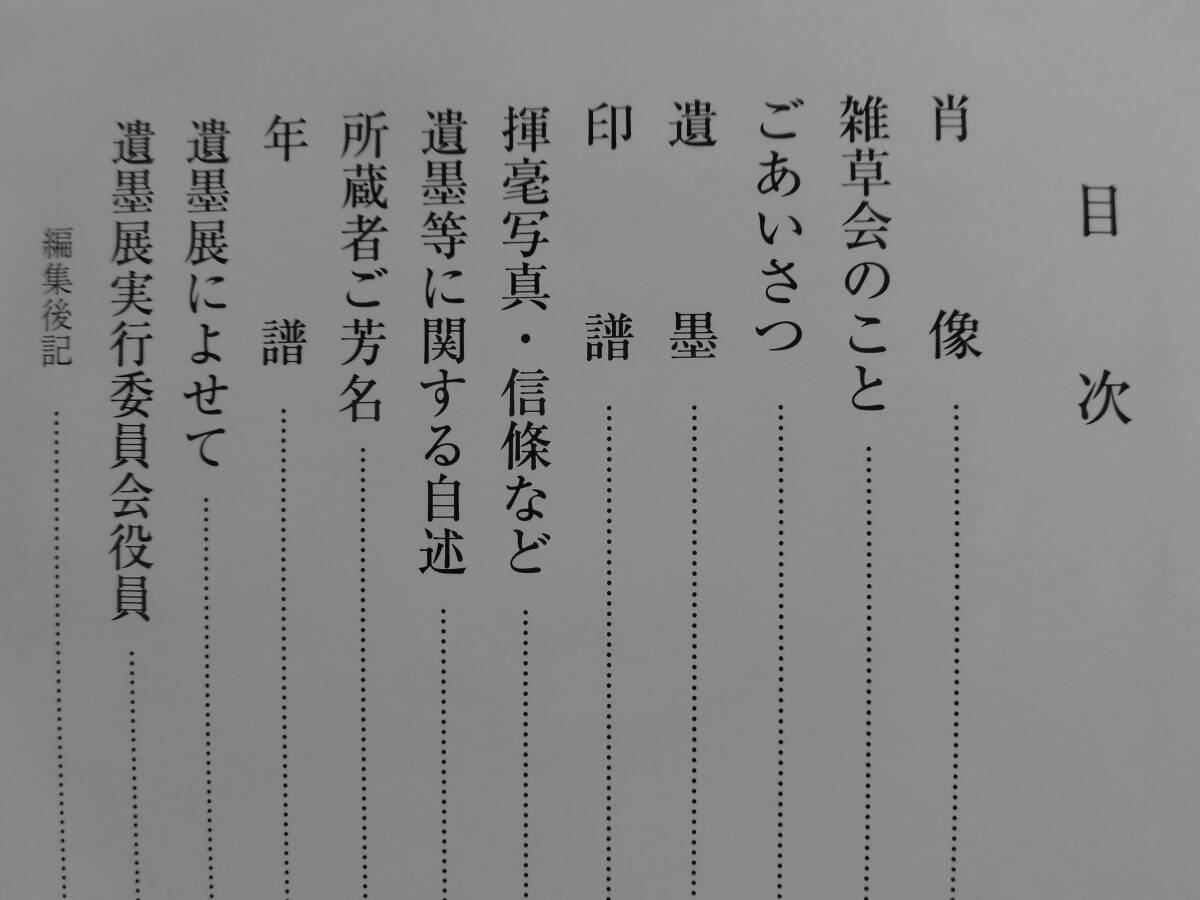 目次
肖像
雑草会のこと
ごあいさつ
遺墨
印譜
揮毫写真・信條など
遺墨等に関する自述
所蔵者ご芳名
年譜
遺墨展によせて
遺墨展実行委員会役員
編集後記